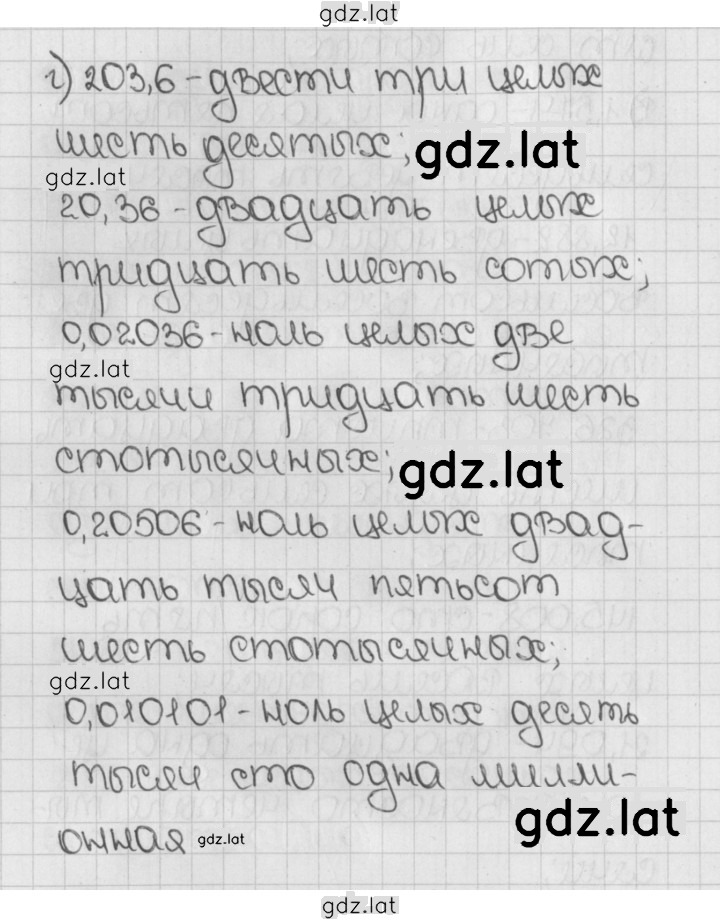 gdz.lat
г) 203,6 - двести три целых
шесть десятых; gdz.lat
gdz.lat
20,36 - двадцать целых
тридцать шесть сотых;
0,02036 - ноль целых две
gdz.lat
тысячи тридцать шесть
стотысячных; gdz.lat
0,20506 - ноль целых двад-
цать тысяч пятьсот
шесть стотысячных;
gdz.lat
0,010101 - ноль целых десять
тысяч сто одна милли-
gdz.lat
онная gdz.lat
gdz.lat